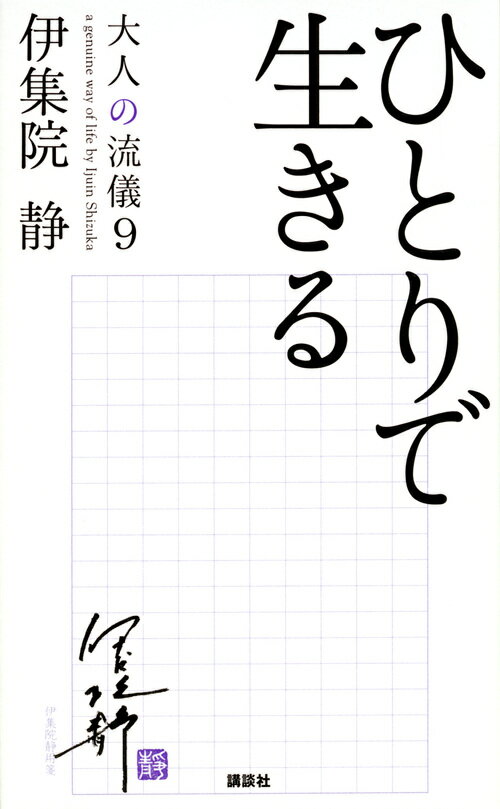 ひとりで
生きる
大人の流儀9
a genuine way of life by Ijuin Shizuka
伊集院 静
伊集院静
静
伊集院静用箋
講談社